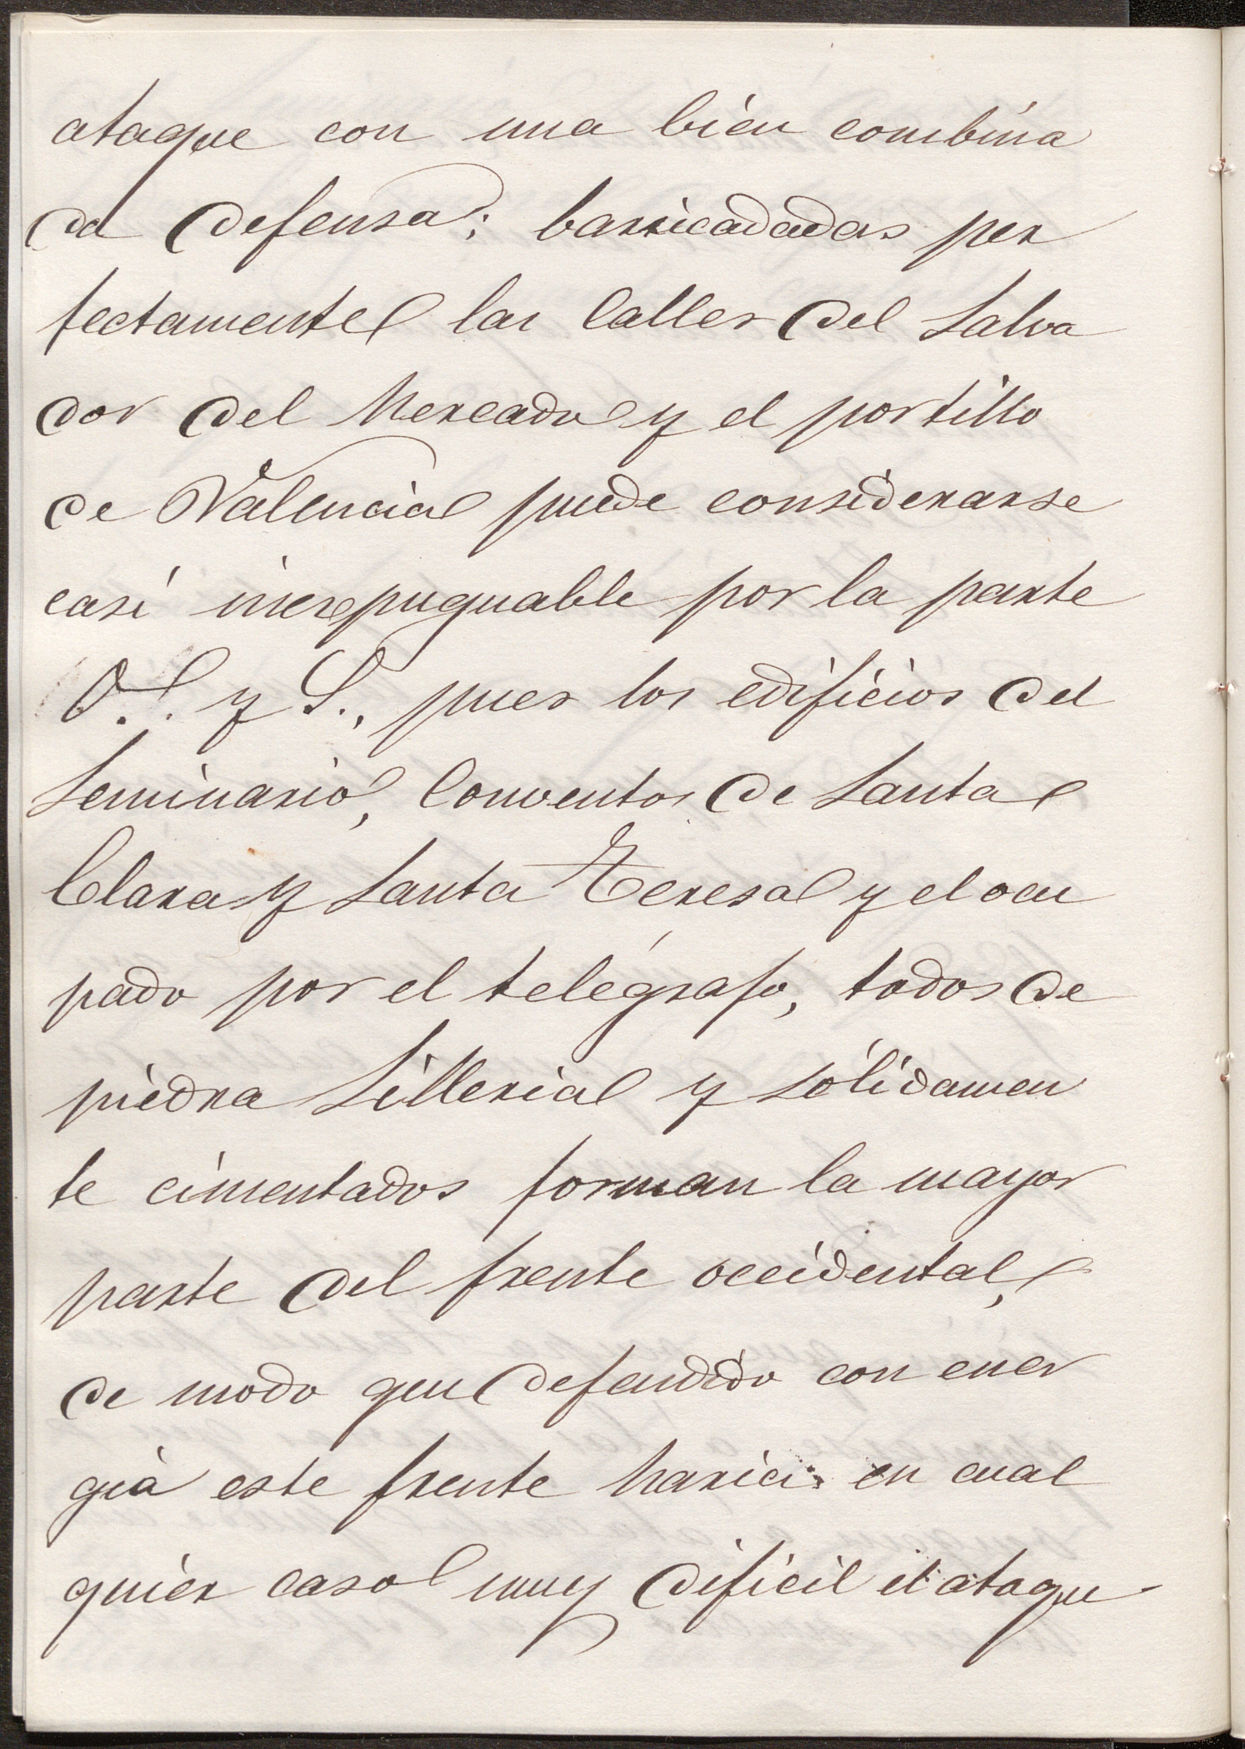 ataque con una bien combina
da defensa; barricadadas per
fectamente las Calles del Salva
dor del Mercado y el portillo
de Valencia puede considerarse
casi inexpugnable por la parte
O. y S., pues los edificios del
Seminario, Conventos de Santa
Clara y Santa Teresa y el ocu
pado por el telégrafo, todos de
piedra Silleria y sólidamen
te cimentados forman la mayor
parte del frente occidental,
de modo que defendido con ener
gia este frente haria en cual
quier caso muy dificil el ataque